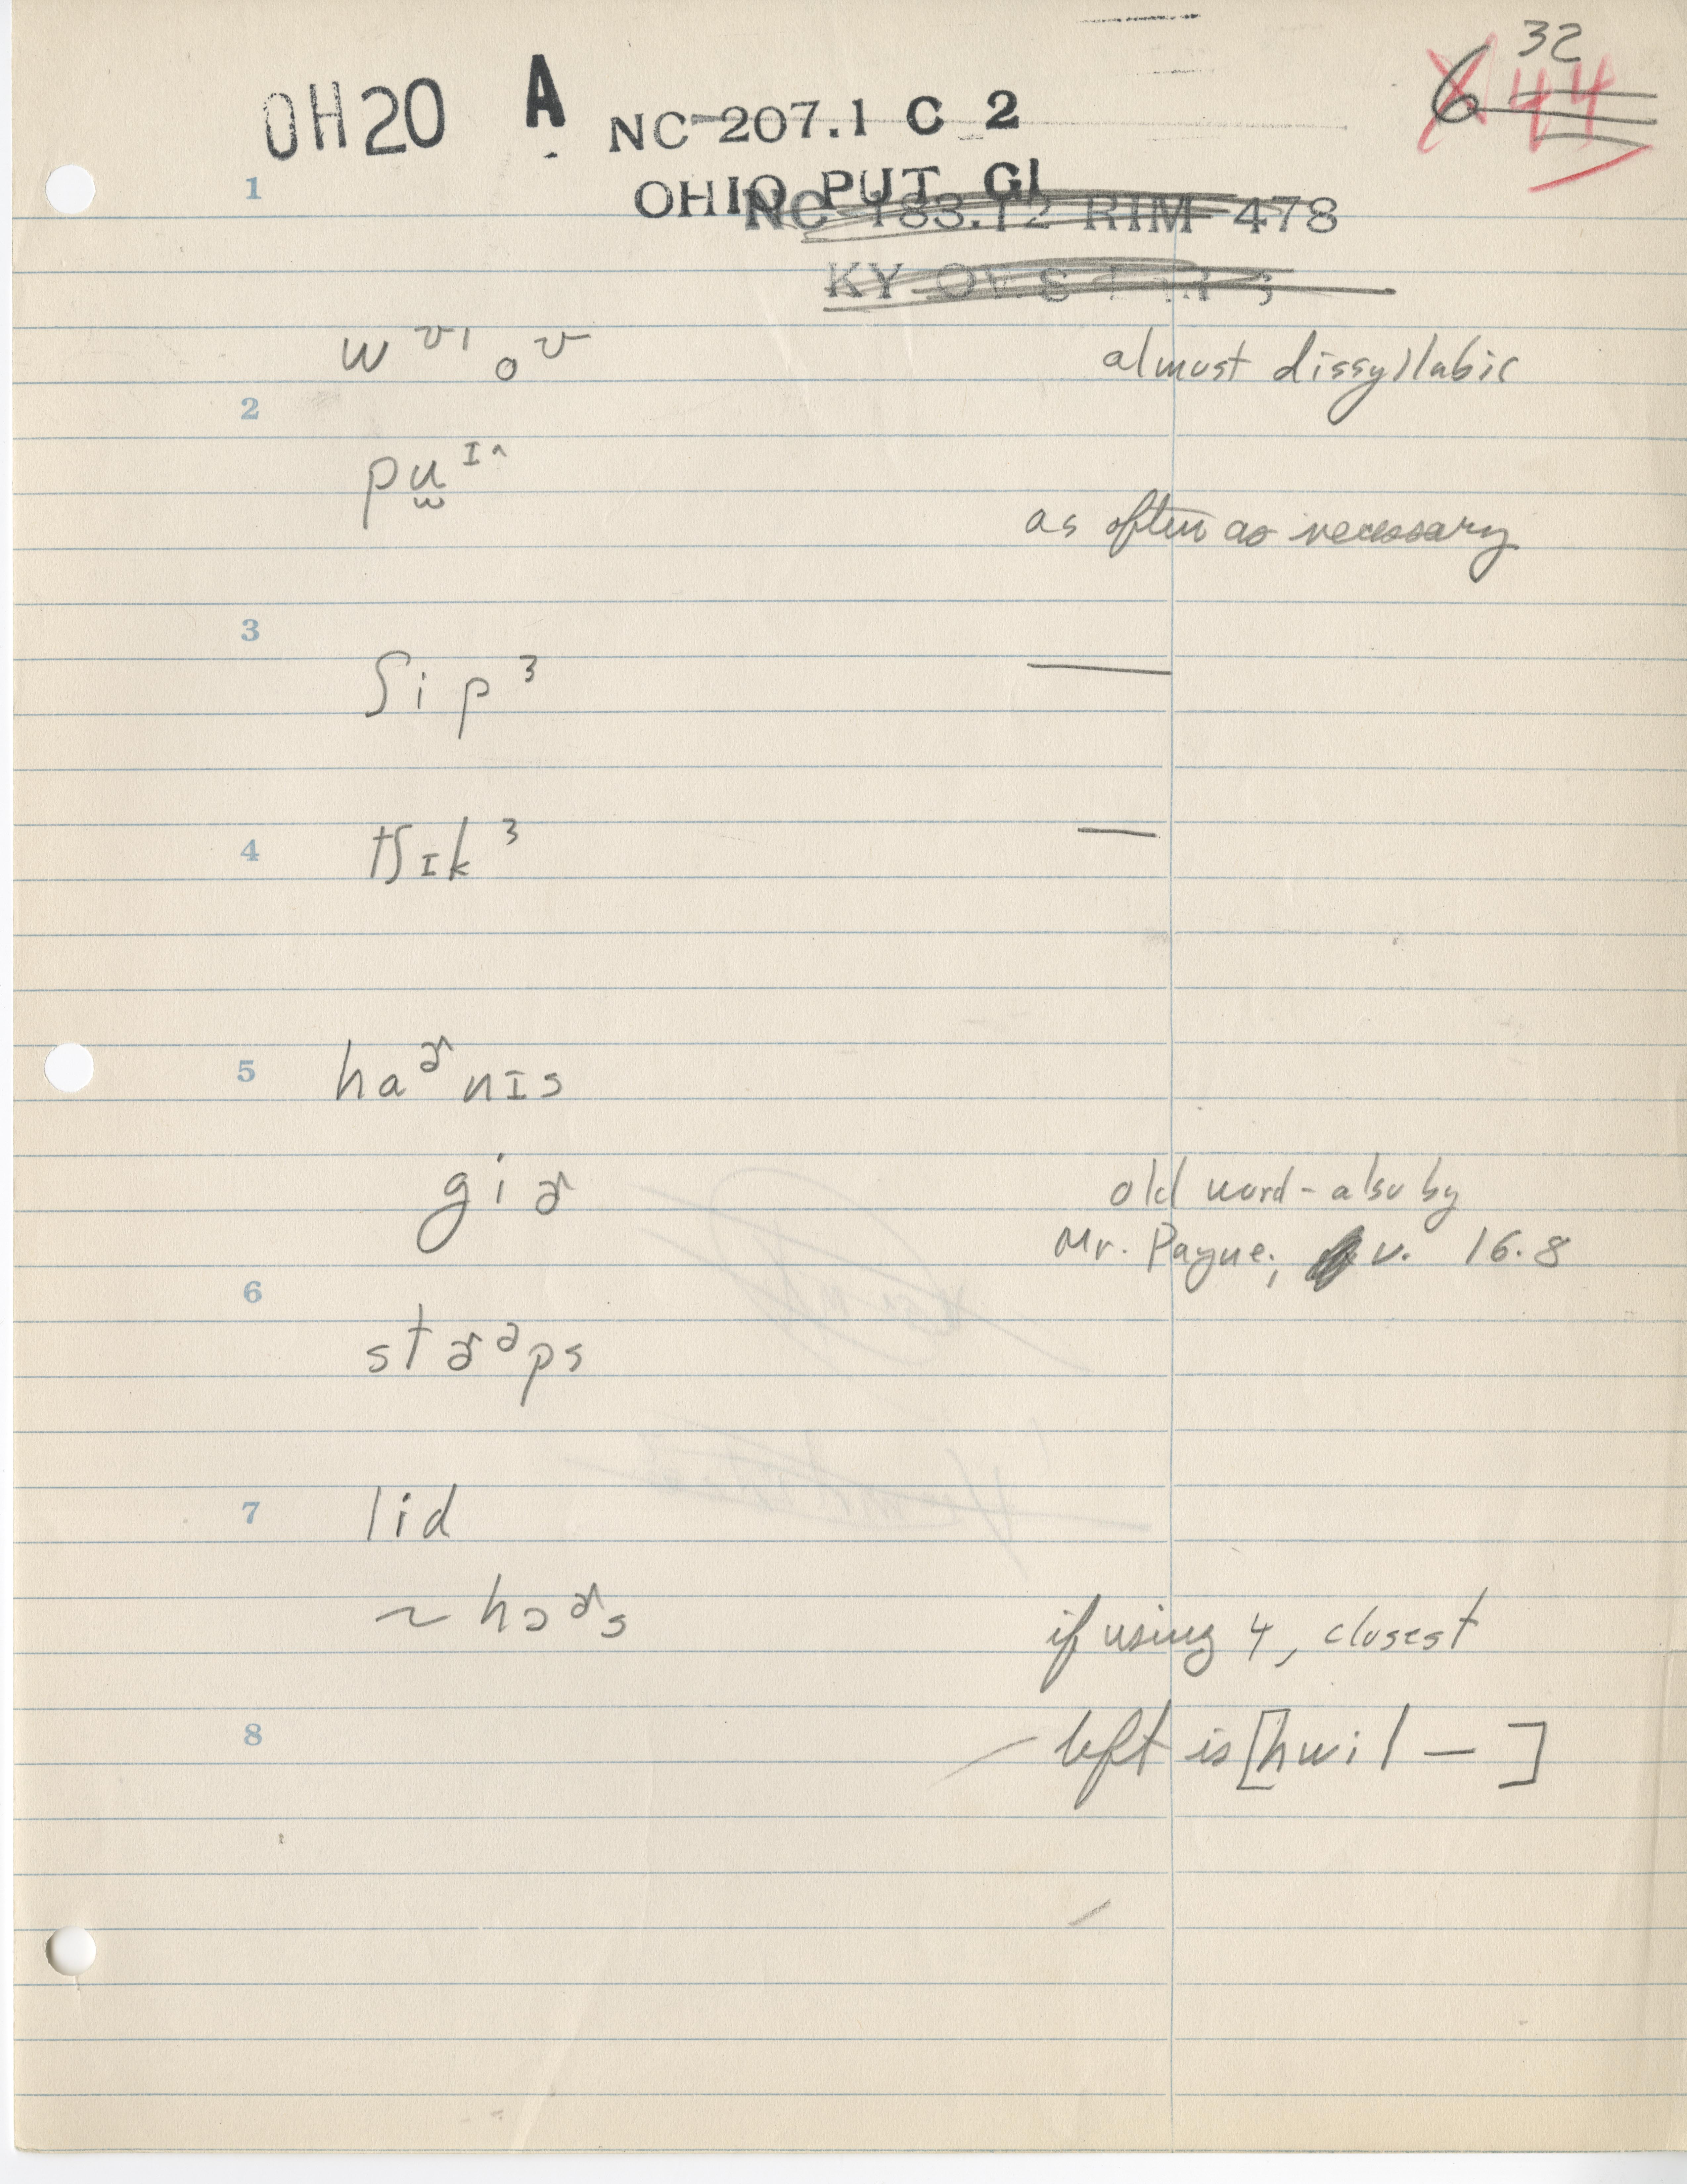 32
6 44
OH20 A NC-207.1 C 2
OHIO PUT GI
NC 183.12 RIM 478
KY
1
w ʊˡ o ʊ almost dissyllabic
2
pu̫ ɪ^
as often as necessary
3
ʃip³ —
4
tʃɪk³ —
5
haɚnɪs
giɚ old word - also by
Mr. Payne; v. 16.8
6
stɚᵊps
7
lid
~ hɔɚs if using 4, closest
8
left is [hwil — ]